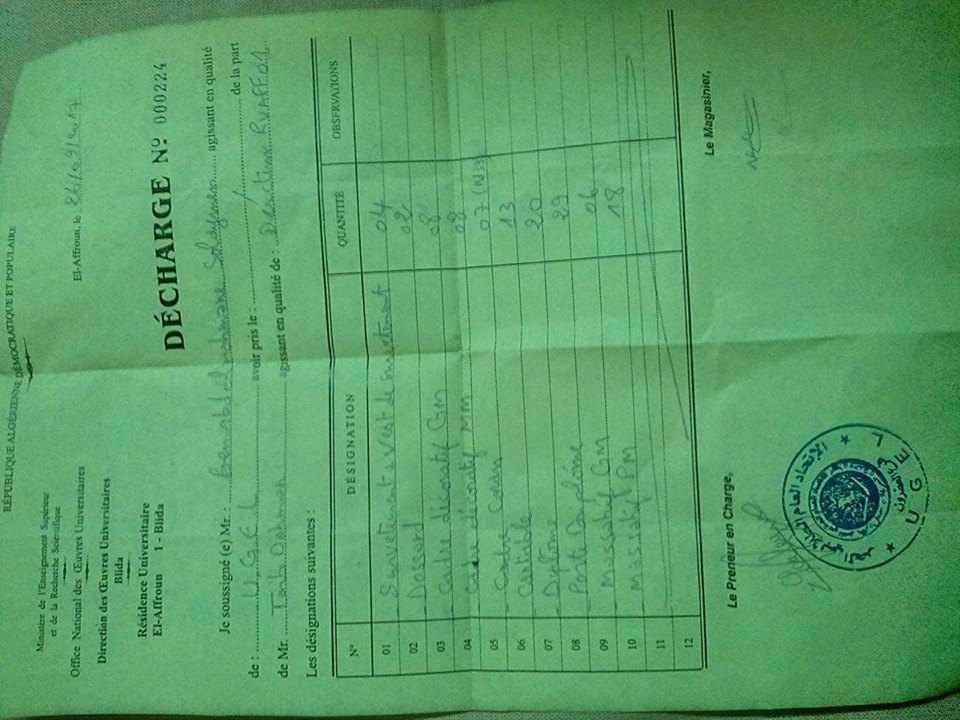 RÉPUBLIQUE ALGÉRIENNE DÉMOCRATIQUE ET POPULAIRE
Ministère de l'Enseignement Supérieur
et de la Recherche Scientifique
Office National des Œuvres Universitaires
Direction des Œuvres Universitaires
Blida
Résidence Universitaire
El-Affroun 1 - Blida
El-Affroun, le
DÉCHARGE Nº 000224
Je soussigné (e) Mr. : Benabdelrahmane Solaymen agissant en qualité
de : U.G.E.L avoir pris le : / de la part
de Mr. agissant en qualité de :
Les désignations suivantes :
Nº DÉSIGNATION QUANTITÉ OBSERVATIONS
01 Survetement 04
02 Dossard 02
03 Cadre décoratif GM 08
04 Cadre décoratif MM 08
05 07
06 Cartable 13
07 20
08 Porte Diplôme 29
09 GM 06
10 PM 18
11
12
Le Preneur en Charge, Le Magasinier,
الإتحاد العام الطلابي الحر
U G E L